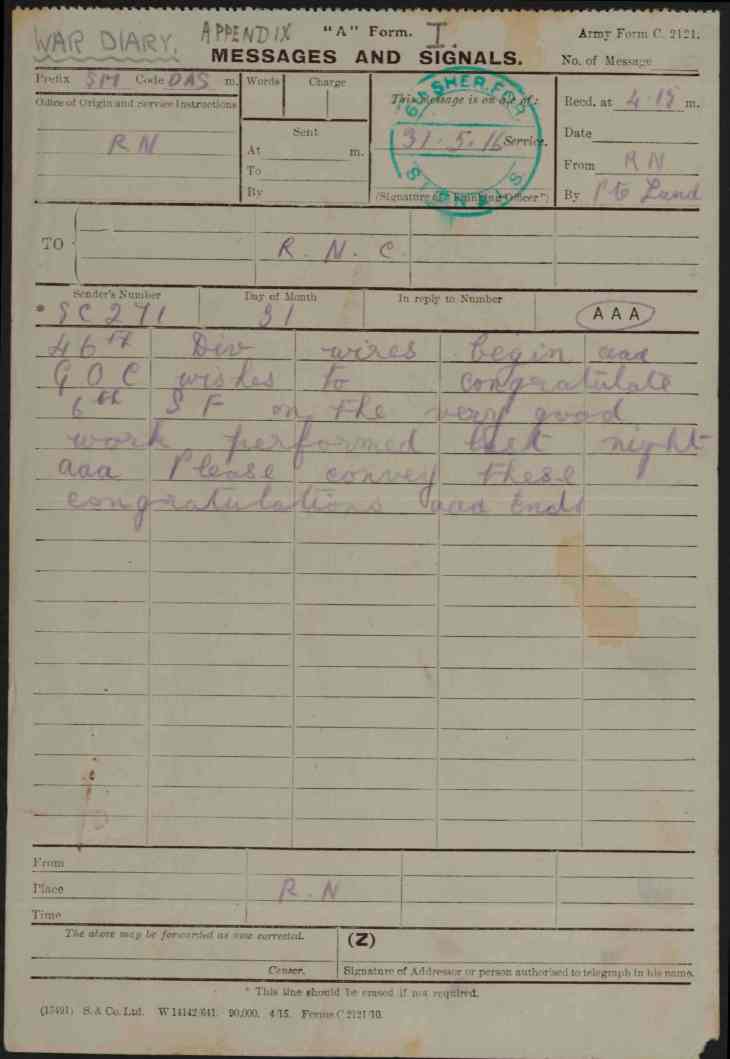 WAR DIARY. APPENDIX I.
"A" Form.
Army Form C. 2121.
MESSAGES AND SIGNALS.
No. of Message
Prefix SM Code DAS m.
Words Charge
This message is on a/c of:
Recd. at 4.15 m.
Office of Origin and Service Instructions
R N
Sent
At m.
To
By
31.5.16 Service.
6 SHER. FOR
SIGNALS
(Signature of "Franking Officer")
Date
From R N
By Pte Land
TO R. N. C.
Sender's Number Day of Month In reply to Number AAA
* SC 271 31
46th Div wires begin aaa
G O C wishes to congratulate
6th S F on the very good
work performed last night
aaa Please convey these
congratulations aaa Ends
From
Place R. N
Time
The above may be forwarded as now corrected. (Z)
Censor. Signature of Addressor or person authorised to telegraph in his name.
* This line should be erased if not required.
S. & Co. Ltd. W 14142/641. 90,000. 4/15. Forms C 2121/10.